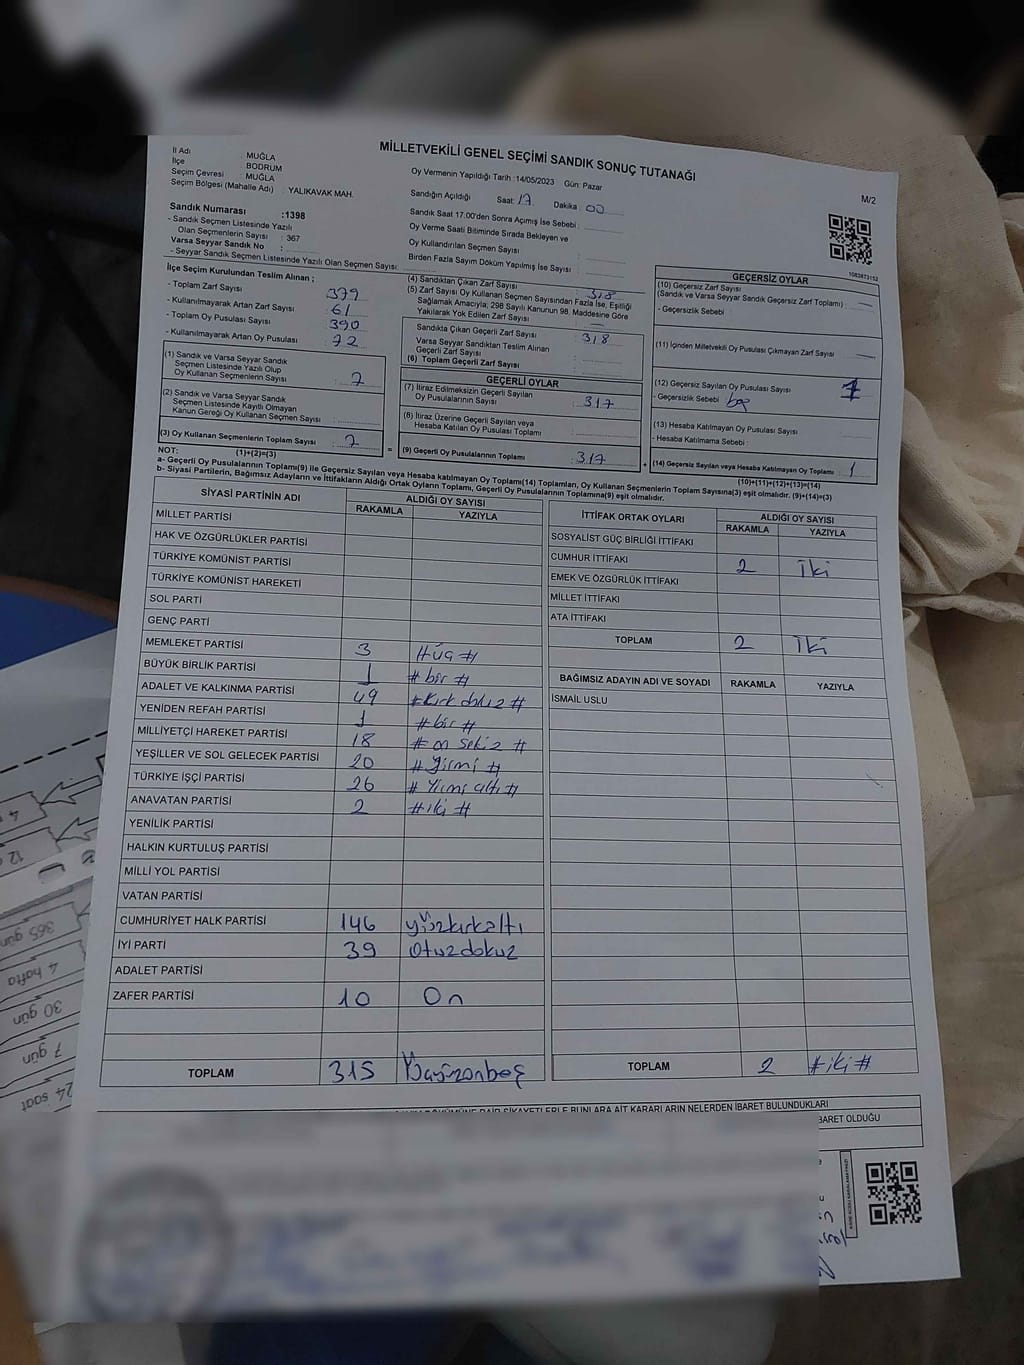 MİLLETVEKİLİ GENEL SEÇİMİ SANDIK SONUÇ TUTANAĞI
M/2
İl Adı : MUĞLA
İlçe : BODRUM
Seçim Çevresi : MUĞLA
Seçim Bölgesi (Mahalle Adı) : YALIKAVAK MAH.
Sandık Numarası :1398
- Sandık Seçmen Listesinde Yazılı
Olan Seçmenlerin Sayısı : 367
Varsa Seyyar Sandık No :
- Seyyar Sandık Seçmen Listesinde Yazılı Olan Seçmen Sayısı:
Oy Vermenin Yapıldığı Tarih :14/05/2023 Gün: Pazar
Sandığın Açıldığı Saat: 17 Dakika : 00
Sandık Saat 17.00'den Sonra Açımış İse Sebebi :
Oy Verme Saati Bitiminde Sırada Bekleyen ve
Oy Kullandırılan Seçmen Sayısı
Birden Fazla Sayım Döküm Yapılmış İse Sayısı :
1083673152
İlçe Seçim Kurulundan Teslim Alınan ;
- Toplam Zarf Sayısı : 379
- Kullanılmayarak Artan Zarf Sayısı : 61
- Toplam Oy Pusulası Sayısı : 390
- Kullanılmayarak Artan Oy Pusulası : 72
(1) Sandık ve Varsa Seyyar Sandık
Seçmen Listesinde Yazılı Olup
Oy Kullanan Seçmenlerin Sayısı : 7
(2) Sandık ve Varsa Seyyar Sandık
Seçmen Listesinde Kayıtlı Olmayan
Kanun Gereği Oy Kullanan Seçmen Sayısı :
(3) Oy Kullanan Seçmenlerin Toplam Sayısı : 7
(4) Sandıktan Çıkan Zarf Sayısı : 318
(5) Zarf Sayısı Oy Kullanan Seçmen Sayısından Fazla İse, Eşitliği
Sağlamak Amacıyla; 298 Sayılı Kanunun 98. Maddesine Göre
Yakılarak Yok Edilen Zarf Sayısı : —
Sandıkta Çıkan Geçerli Zarf Sayısı : 318
Varsa Seyyar Sandıktan Teslim Alınan
Geçerli Zarf Sayısı
(6) Toplam Geçerli Zarf Sayısı :
GEÇERLİ OYLAR
(7) İtiraz Edilmeksizin Geçerli Sayılan
Oy Pusulalarının Sayısı : 317
(8) İtiraz Üzerine Geçerli Sayılan veya
Hesaba Katılan Oy Pusulası Toplamı :
= (9) Geçerli Oy Pusulalarının Toplamı : 317
GEÇERSİZ OYLAR
(10) Geçersiz Zarf Sayısı
(Sandık ve Varsa Seyyar Sandık Geçersiz Zarf Toplamı) : —
- Geçersizlik Sebebi :
(11) İçinden Milletvekili Oy Pusulası Çıkmayan Zarf Sayısı : —
(12) Geçersiz Sayılan Oy Pusulası Sayısı : 1
- Geçersizlik Sebebi : boş
(13) Hesaba Katılmayan Oy Pusulası Sayısı :
- Hesaba Katılmama Sebebi :
+ (14) Geçersiz Sayılan veya Hesaba Katılmayan Oy Toplamı : 1
NOT: (1)+(2)=(3)
(10)+(11)+(12)+(13)=(14)
a- Geçerli Oy Pusulalarının Toplamı(9) ile Geçersiz Sayılan veya Hesaba Katılmayan Oy Toplamı(14) Toplamları, Oy Kullanan Seçmenlerin Toplam Sayısına(3) eşit olmalıdır. (9)+(14)=(3)
b- Siyasi Partilerin, Bağımsız Adayların ve İttifakların Aldığı Ortak Oyların Toplamı, Geçerli Oy Pusulalarının Toplamına(9) eşit olmalıdır.
SİYASİ PARTİNİN ADI ALDIĞI OY SAYISI
RAKAMLA YAZIYLA
MİLLET PARTİSİ
HAK VE ÖZGÜRLÜKLER PARTİSİ
TÜRKİYE KOMÜNİST PARTİSİ
TÜRKİYE KOMÜNİST HAREKETİ
SOL PARTİ
GENÇ PARTİ
MEMLEKET PARTİSİ 3 #üç#
BÜYÜK BİRLİK PARTİSİ 1 #bir#
ADALET VE KALKINMA PARTİSİ 49 #Kırk dokuz#
YENİDEN REFAH PARTİSİ 1 #bir#
MİLLİYETÇİ HAREKET PARTİSİ 18 #on sekiz#
YEŞİLLER VE SOL GELECEK PARTİSİ 20 #Yirmi#
TÜRKİYE İŞÇİ PARTİSİ 26 #Yirmi altı#
ANAVATAN PARTİSİ 2 #iki#
YENİLİK PARTİSİ
HALKIN KURTULUŞ PARTİSİ
MİLLİ YOL PARTİSİ
VATAN PARTİSİ
CUMHURİYET HALK PARTİSİ 146 yüzkırkaltı
İYİ PARTİ 39 Otuzdokuz
ADALET PARTİSİ
ZAFER PARTİSİ 10 On
TOPLAM 315 Üçyüzonbeş
İTTİFAK ORTAK OYLARI ALDIĞI OY SAYISI
RAKAMLA YAZIYLA
SOSYALİST GÜÇ BİRLİĞİ İTTİFAKI
CUMHUR İTTİFAKI 2 İki
EMEK VE ÖZGÜRLÜK İTTİFAKI
MİLLET İTTİFAKI
ATA İTTİFAKI
TOPLAM 2 İki
BAĞIMSIZ ADAYIN ADI VE SOYADI RAKAMLA YAZIYLA
İSMAİL USLU
TOPLAM 2 #iki#
DÖKÜMÜNE DAİR ŞİKAYETLERLE BUNLARA AİT KARARLARIN NELERDEN İBARET BULUNDUKLARI
BARET OLDUĞU
365 gün
4 hafta
30 gün
7 gün
24 saat